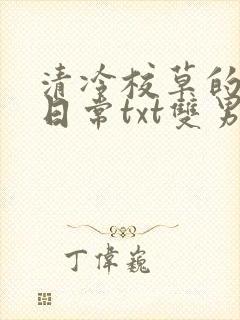 清冷校草的
日常txt雙男
丁偉巍